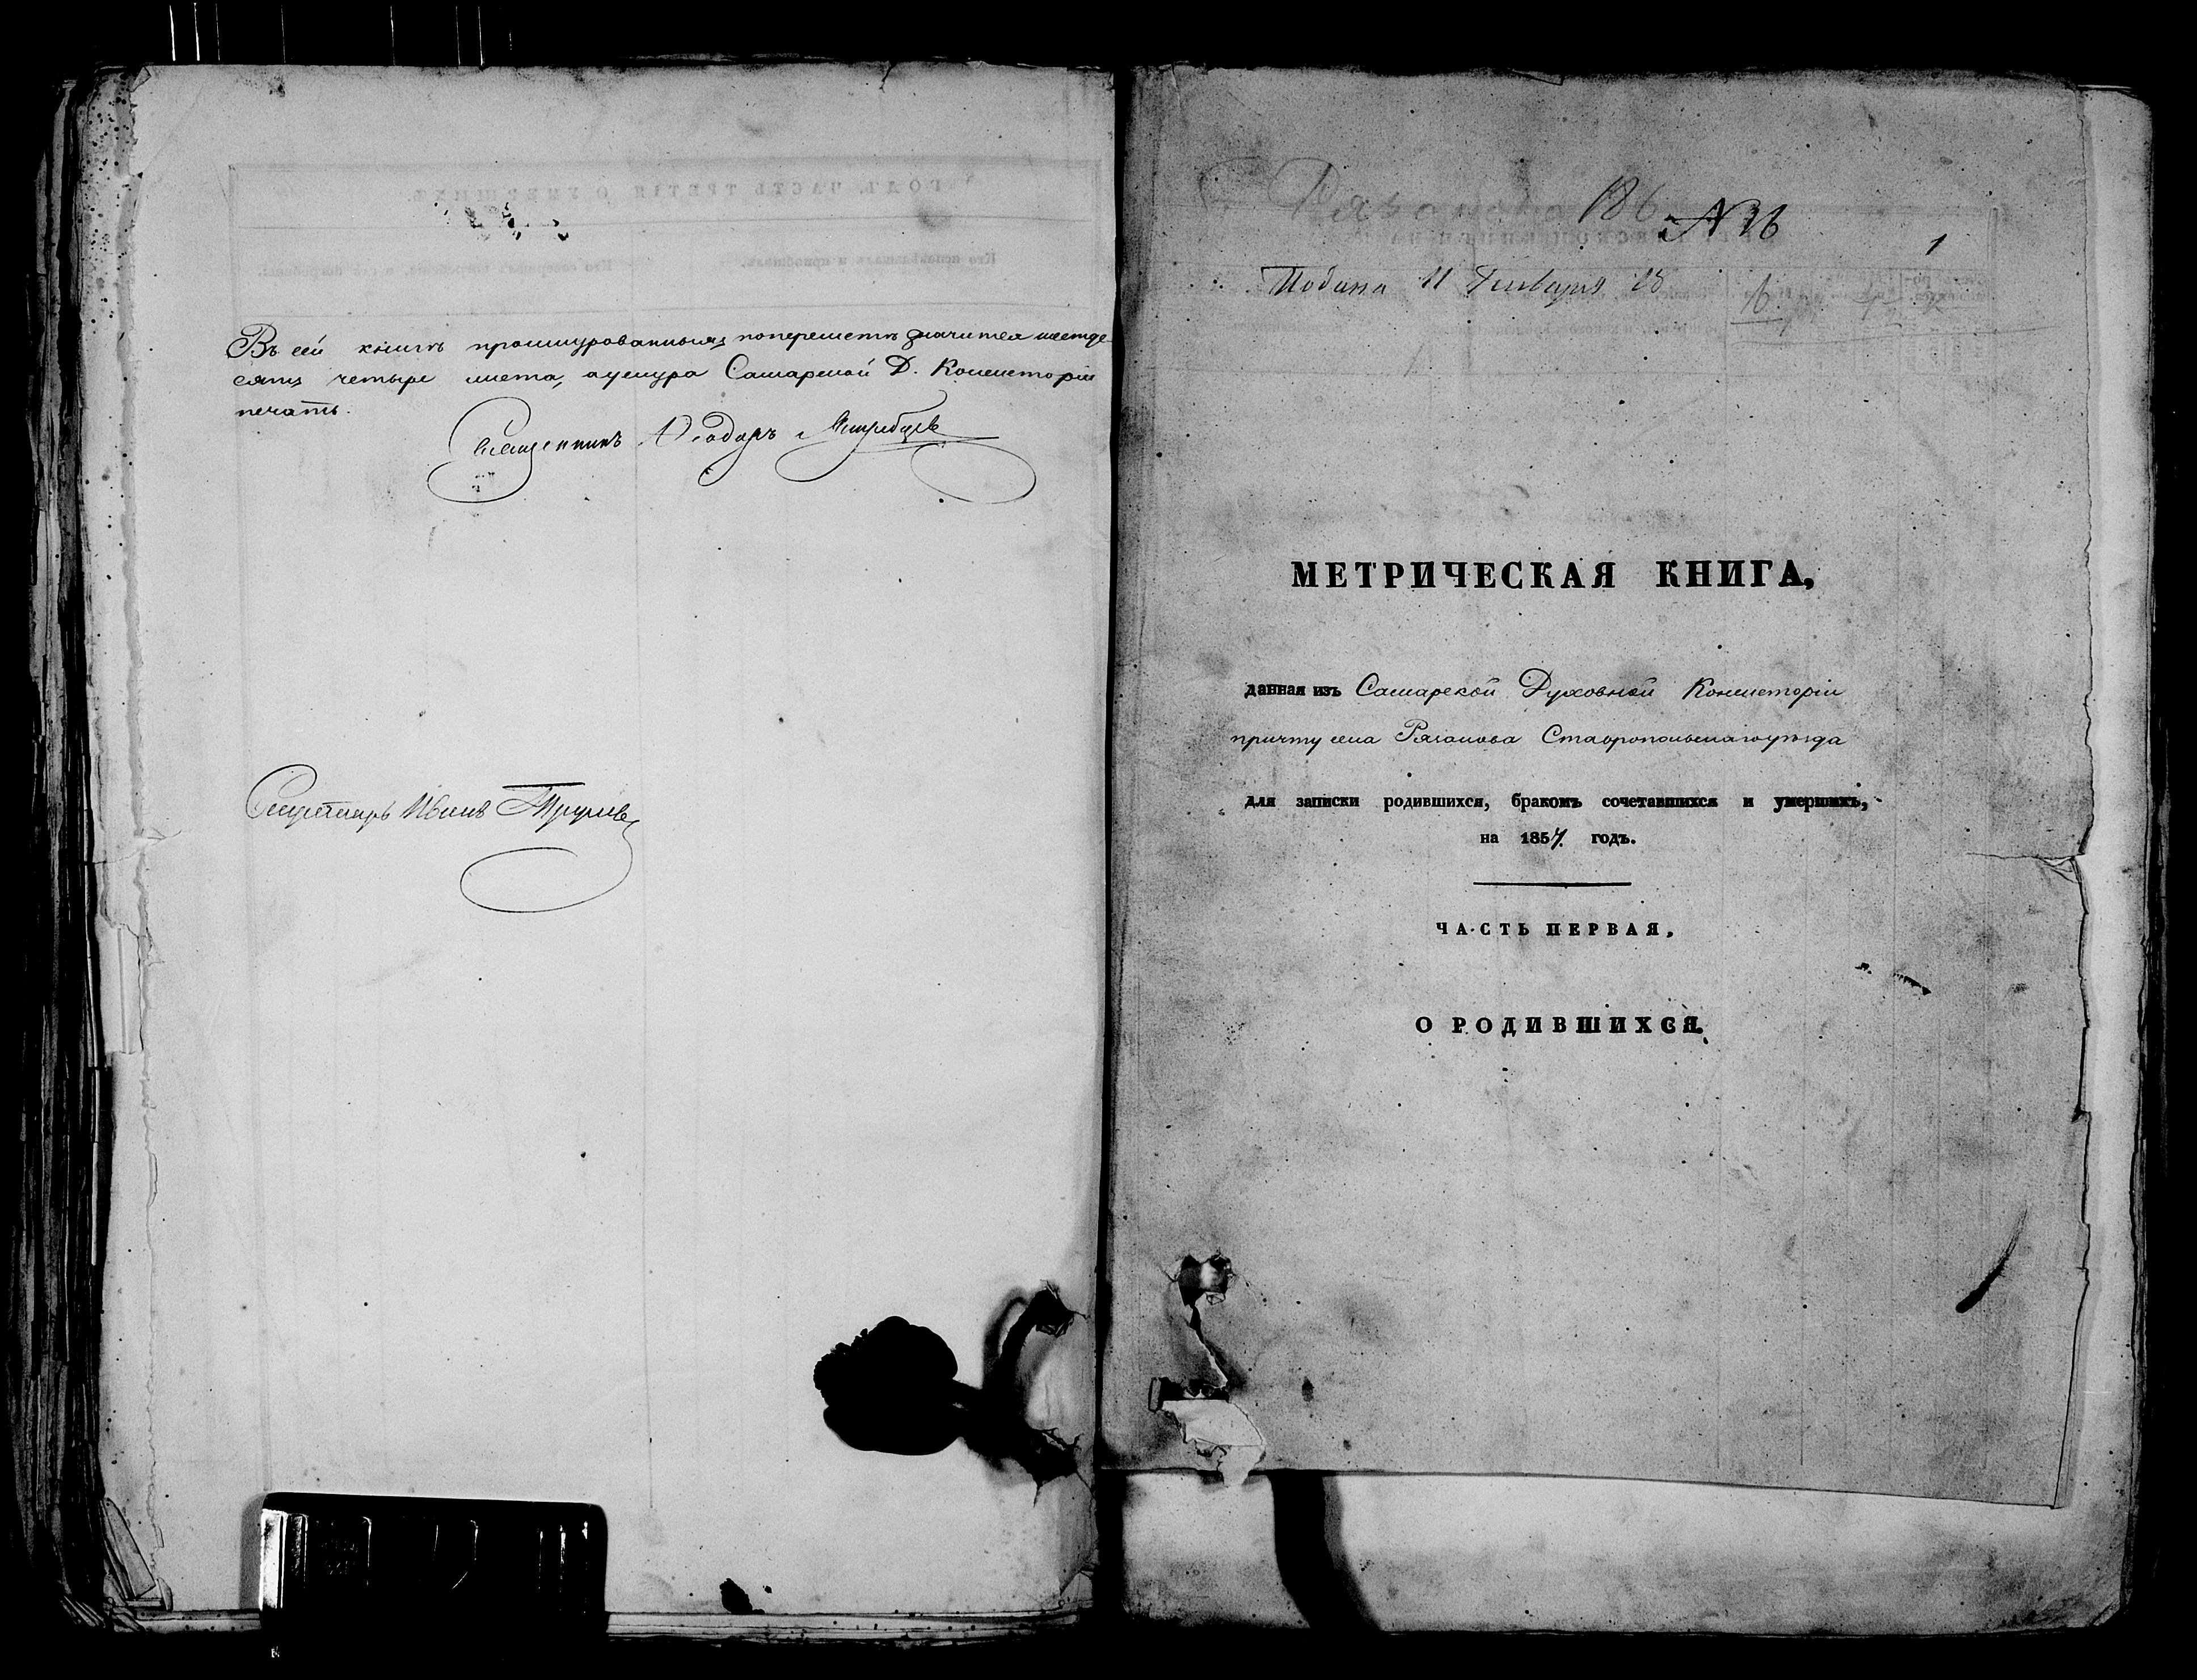 Въ сей книгѣ прошнурованныхъ номеръ значится шестде-
сятъ четыре листа, а у шнура Самарской Д. Консисторіи
печать.
Священникъ Ѳеодоръ
Секретарь Иванъ
Рязаново 186
№ 16
1
Подана 11 Генваря
МЕТРИЧЕСКАЯ КНИГА,
данная изъ Самарской Духовной Консисторіи
причту села Рязанова Ставропольскаго уѣзда
для записки родившихся, бракомъ сочетавшихся и умершихъ,
на 1857 годъ.
ЧАСТЬ ПЕРВАЯ,
О РОДИВШИХСЯ.